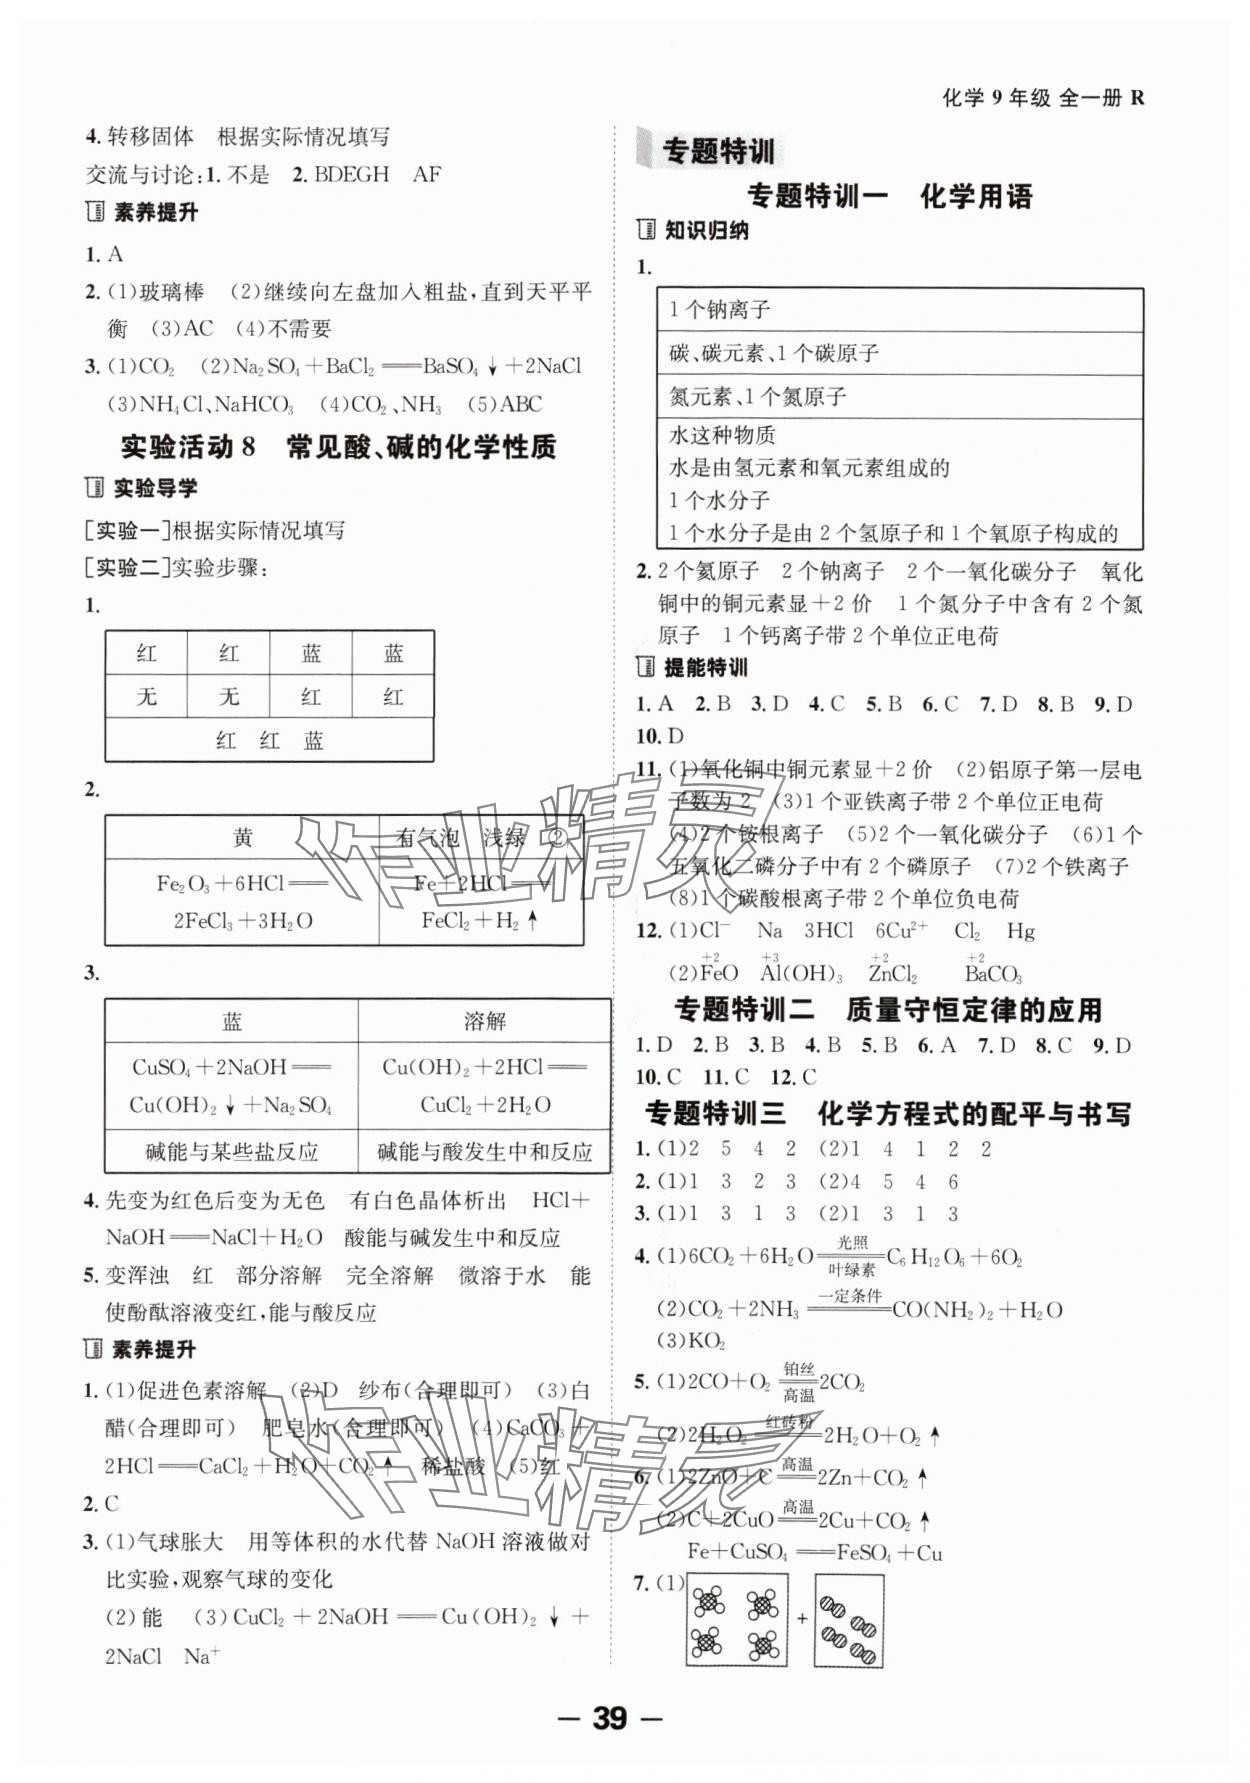 化学 9 年级 全一册 R
4. 转移固体 根据实际情况填写
交流与讨论:1. 不是 2. BDEGH AF
素养提升
1. A
2. (1)玻璃棒 (2)继续向左盘加入粗盐,直到天平平
衡 (3)AC (4)不需要
3. (1)CO₂ (2)Na₂SO₄+BaCl₂══BaSO₄↓+2NaCl
(3)NH₄Cl、NaHCO₃ (4)CO₂、NH₃ (5)ABC
实验活动 8 常见酸、碱的化学性质
实验导学
[实验一]根据实际情况填写
[实验二]实验步骤:
1.
红 红 蓝 蓝
无 无 红 红
红 红 蓝
2.
黄 有气泡 浅绿 ②
Fe₂O₃+6HCl══ Fe+2HCl══
2FeCl₃+3H₂O FeCl₂+H₂↑
3.
蓝 溶解
CuSO₄+2NaOH══ Cu(OH)₂+2HCl══
Cu(OH)₂↓+Na₂SO₄ CuCl₂+2H₂O
碱能与某些盐反应 碱能与酸发生中和反应
4. 先变为红色后变为无色 有白色晶体析出 HCl+
NaOH══NaCl+H₂O 酸能与碱发生中和反应
5. 变浑浊 红 部分溶解 完全溶解 微溶于水 能
使酚酞溶液变红,能与酸反应
素养提升
1. (1)促进色素溶解 (2)D 纱布(合理即可) (3)白
醋(合理即可) 肥皂水(合理即可) (4)CaCO₃+
2HCl══CaCl₂+H₂O+CO₂↑ 稀盐酸 (5)红
2. C
3. (1)气球胀大 用等体积的水代替 NaOH 溶液做对
比实验,观察气球的变化
(2)能 (3)CuCl₂+2NaOH══Cu(OH)₂↓+
2NaCl Na⁺
专题特训
专题特训一 化学用语
知识归纳
1.
1 个钠离子
碳、碳元素、1 个碳原子
氮元素、1 个氮原子
水这种物质
水是由氢元素和氧元素组成的
1 个水分子
1 个水分子是由 2 个氢原子和 1 个氧原子构成的
2. 2 个氦原子 2 个钠离子 2 个一氧化碳分子 氧化
铜中的铜元素显+2 价 1 个氮分子中含有 2 个氮
原子 1 个钙离子带 2 个单位正电荷
提能特训
1. A 2. B 3. D 4. C 5. B 6. C 7. D 8. B 9. D
10. D
11. (1)氧化铜中铜元素显+2 价 (2)铝原子第一层电
子数为 2 (3)1 个亚铁离子带 2 个单位正电荷
(4)2 个铵根离子 (5)2 个一氧化碳分子 (6)1 个
五氧化二磷分子中有 2 个磷原子 (7)2 个铁离子
(8)1 个碳酸根离子带 2 个单位负电荷
12. (1)Cl⁻ Na 3HCl 6Cu²⁺ Cl₂ Hg
+2 +3 +2 +2
(2)FeO Al(OH)₃ ZnCl₂ BaCO₃
专题特训二 质量守恒定律的应用
1. D 2. B 3. B 4. B 5. B 6. A 7. D 8. C 9. D
10. C 11. C 12. C
专题特训三 化学方程式的配平与书写
1. (1)2 5 4 2 (2)1 4 1 2 2
2. (1)1 3 2 3 (2)4 5 4 6
3. (1)1 3 1 3 (2)1 3 1 3
光照
4. (1)6CO₂+6H₂O══C₆H₁₂O₆+6O₂
叶绿素
一定条件
(2)CO₂+2NH₃══CO(NH₂)₂+H₂O
(3)KO₂
铂丝
5. (1)2CO+O₂══2CO₂
高温
红砖粉
(2)2H₂O₂══2H₂O+O₂↑
高温
6. (1)2ZnO+C══2Zn+CO₂↑
高温
(2)C+2CuO══2Cu+CO₂↑
Fe+CuSO₄══FeSO₄+Cu
7. (1) +
— 39 —
作业精灵
作业精灵